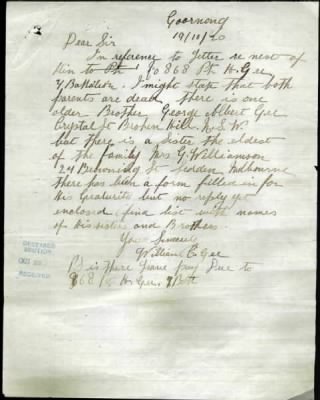 Goornong
19/10/20
Dear Sir
In reference to letter re next of
Kin to Pte 868 Pt H. Gee
7 Battalion. I might state that both
parents are dead, there is one
older Brother George Albert Gee
Crystal St Broken Hill N.S.W.
but there is a sister the eldest
of the family Mrs G. Williamson
24 Browning St Melbourne
there has been a form filled in for
his Gratuity but no reply yet
enclosed find list with names
of his sisters and Brothers.
Yours Sincerely
William E Gee
PS is there leave pay Due to
868 Pt H Gee. 7 Batt
DECEASED
OCT 20
RECEIVED